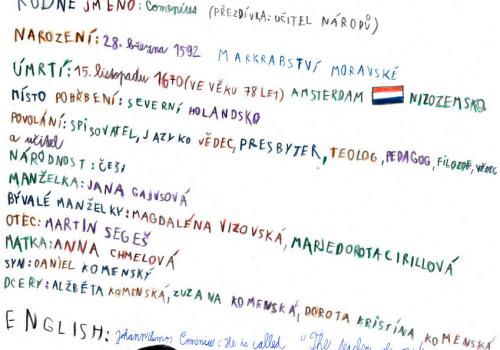 RODNÉ JMÉNO: Comenius (PŘEZDÍVKA: UČITEL NÁRODŮ)
NAROZENÍ: 28. března 1592 MARKRABSTVÍ MORAVSKÉ
ÚMRTÍ: 15. listopadu 1670 (VE VĚKU 78 LET) AMSTERDAM NIZOZEMSKO
MÍSTO POHŘBENÍ: SEVERNÍ HOLANDSKO
POVOLÁNÍ: SPISOVATEL, JAZYKO VĚDEC, PRESBYTER, TEOLOG, PEDAGOG, FILOZOF, VĚDEC
a učitel
NÁRODNOST: ČEŠI
MANŽELKA: JANA GAJUSOVÁ
BÝVALÉ MANŽELKY: MAGDALÉNA VIZOVSKÁ, MARIE DOROTA CIRILLOVÁ
OTEC: MARTIN SEGEŠ
MATKA: ANNA CHMELOVÁ
SYN: DANIEL KOMENSKÝ
DCERY: ALŽBĚTA KOMENSKÁ, ZUZANA KOMENSKÁ, DOROTA KRISTÍNA KOMENSKÁ
ENGLISH: Johann Amos Comenius: He is called "The